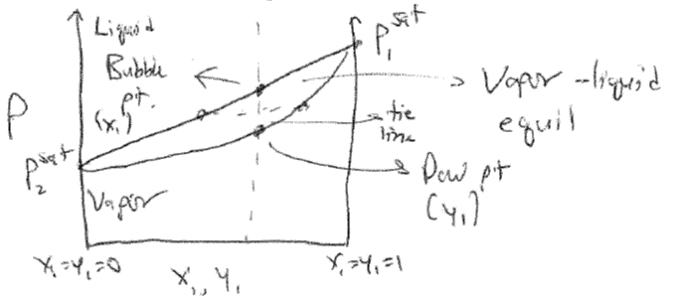 Liquid
Bubble
pt.
(x₁)
P
P₁ˢᵃᵗ
Vapor-liquid
equil
tie
line
Dew pt
(y₁)
P₂ˢᵃᵗ
Vapor
x₁=y₁=0
x₁, y₁
x₁=y₁=1